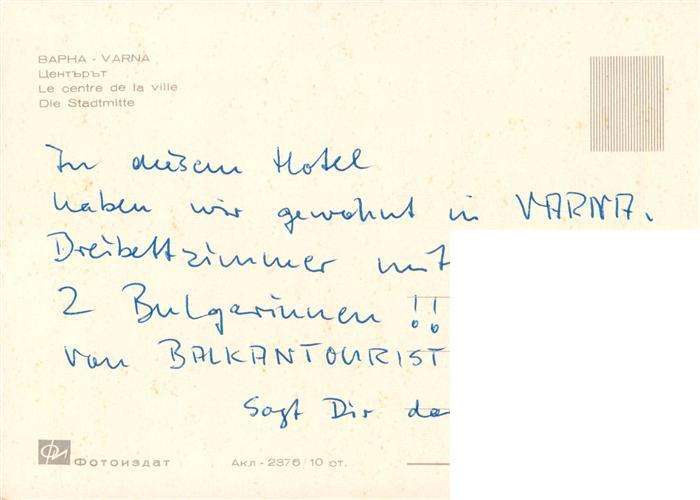 ВАРНА - VARNA
Центърът
Le centre de la ville
Die Stadtmitte
In diesem Hotel
haben wir gewohnt in VARNA.
Dreibettzimmer mit
2 Bulgarinnen !!
von BALKANTOURIST
Sagt Dir
Фотоиздат
Акл - 2375/10 ст.